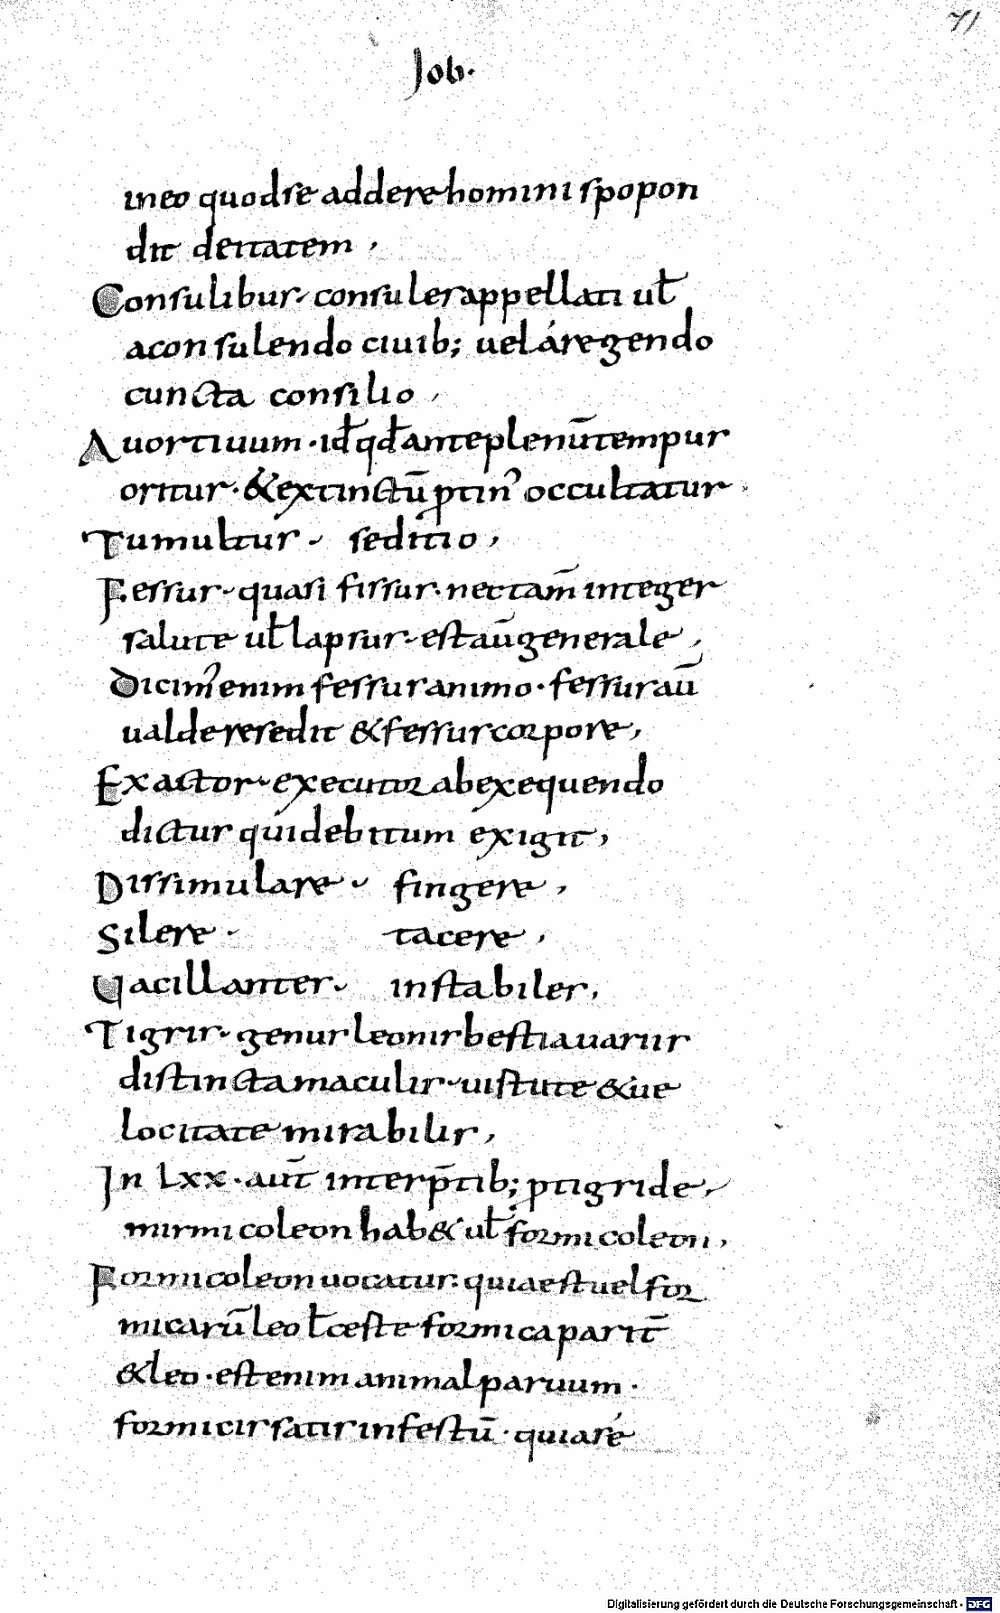 71
Job.
in eo quod se addere homini spopon
dit deitatem,
Consulibus. consules appellati ul̄
a consulendo ciuib; uel á regendo
cuncta consilio,
Auortiuum. id̄ qd̄ ante plenū tempus
oritur. & extinctū ptin' occultatur.
Tumultus. seditio,
Fessus. quasi fissus. nec tam̄ integer
salute ul̄ lapsus. est aū generale,
Dicim' enim fessus animo. fessus aū
ualde resedit & fessus corpore,
Exactor. executor ab exequendo
dictus qui debitum exigit,
Dissimulare. fingere,
Silere. tacere,
Uacillantes. instabiles,
Tigris. genus leonis bestia uariis
distincta maculis. uistute & ue
locitate mirabilis,
In Lxx. aut̄ interp̄tib; p tigride,
mirmicoleon hab& ul̄ formicoleon,
Formicoleon uocatur. quia est uel for
micarū leo ł ceste formica parit̄
& leo. est enim animal paruum.
formicis satis infestū. quia sé
Digitalisierung gefördert durch die Deutsche Forschungsgemeinschaft - DFG